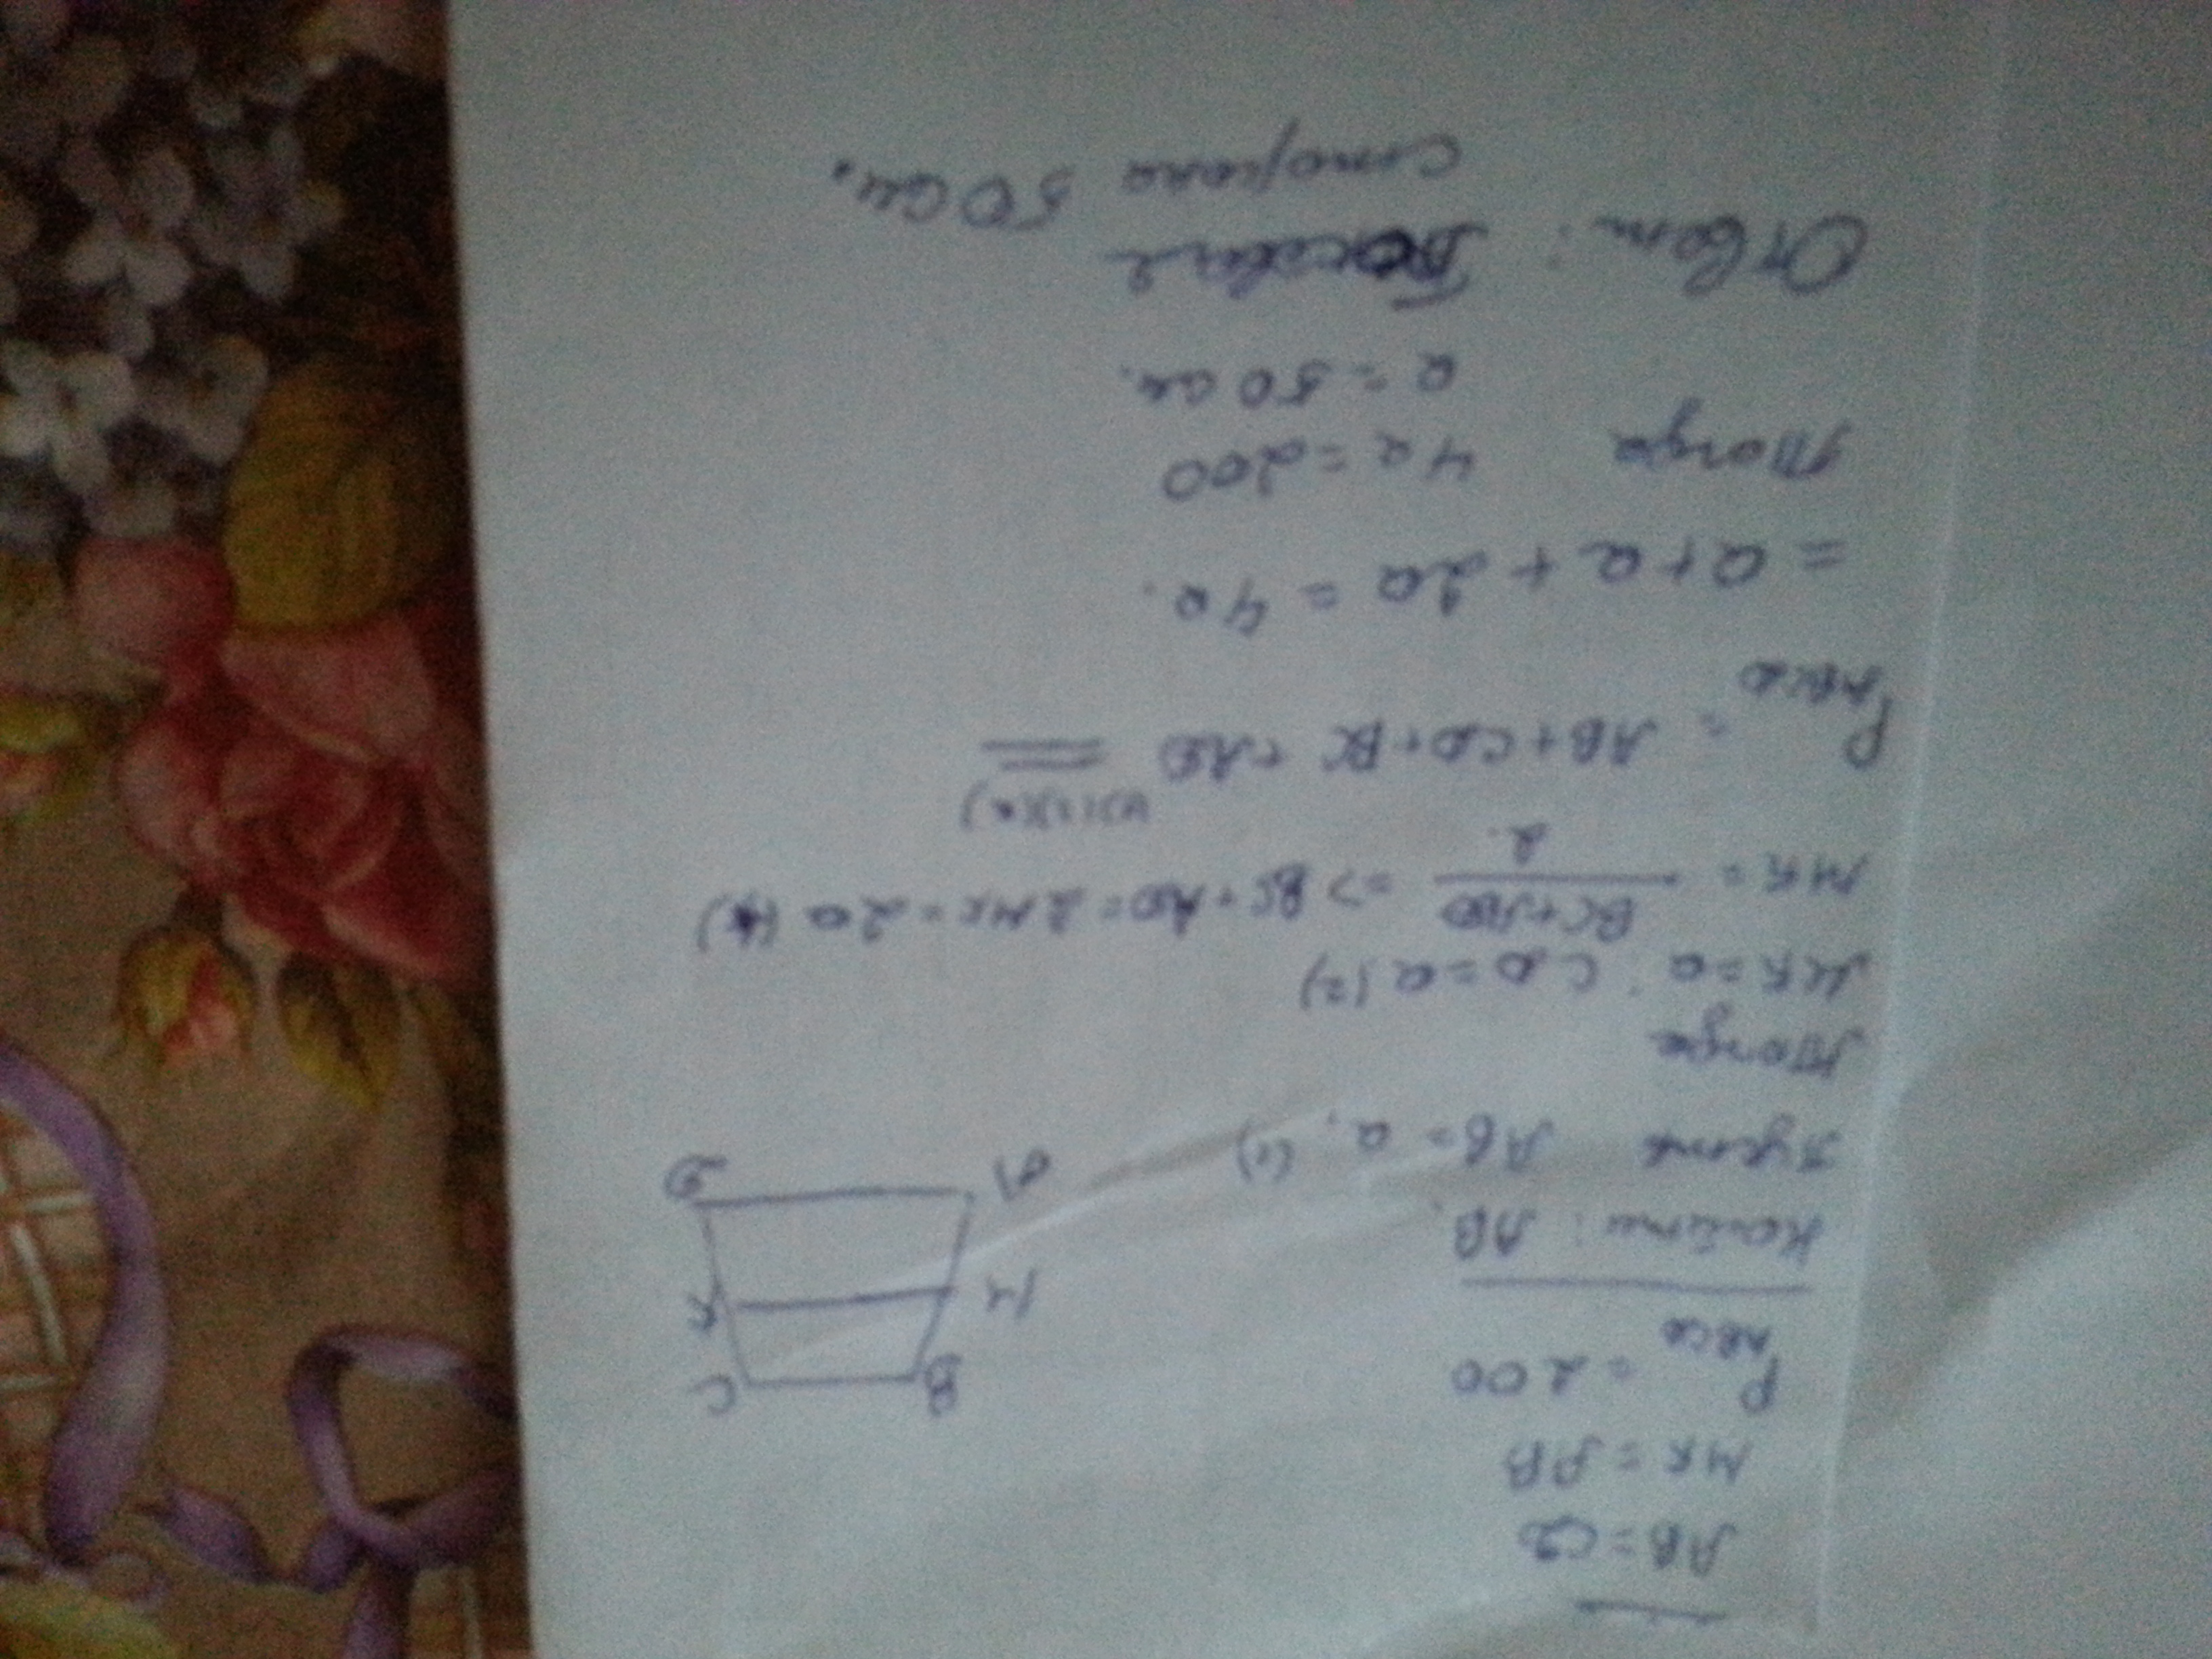 AB = CD
MK = AB
P ABCD = 200
Найти: AB.
B C
M K
A D
Пусть AB = a, (1)
Тогда
MK = a; CD = a (2)
MK = BC+AD / 2 => BC + AD = 2MK = 2a (*)
P ABCD = AB + CD + BC + AD (1)(2)(*) =
= a + a + 2a = 4a.
Тогда 4a = 200
a = 50 см.
Ответ: Боковая
сторона 50 см.